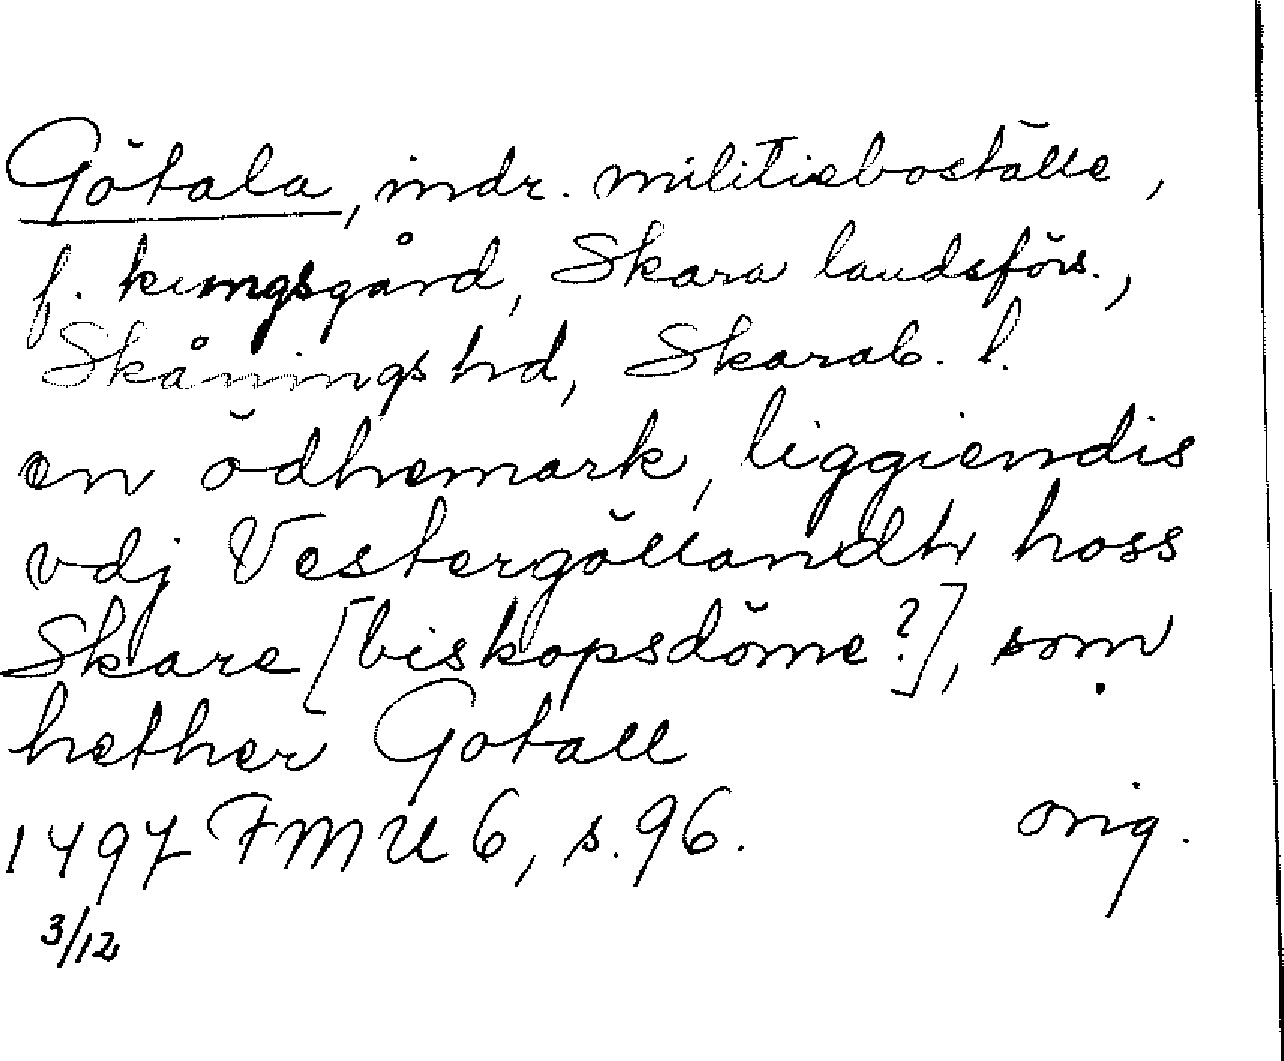 Götala, indr. militieboställe,
f. kungsgård, Skara landsförs.,
Skånings hd, Skarab. l.
en ödhemark, liggiendis
vdj Vestergöllandh hoss
Skare [biskopsdöme?], som
hether Gotall
1497 FMU 6, s. 96. orig.
3/12